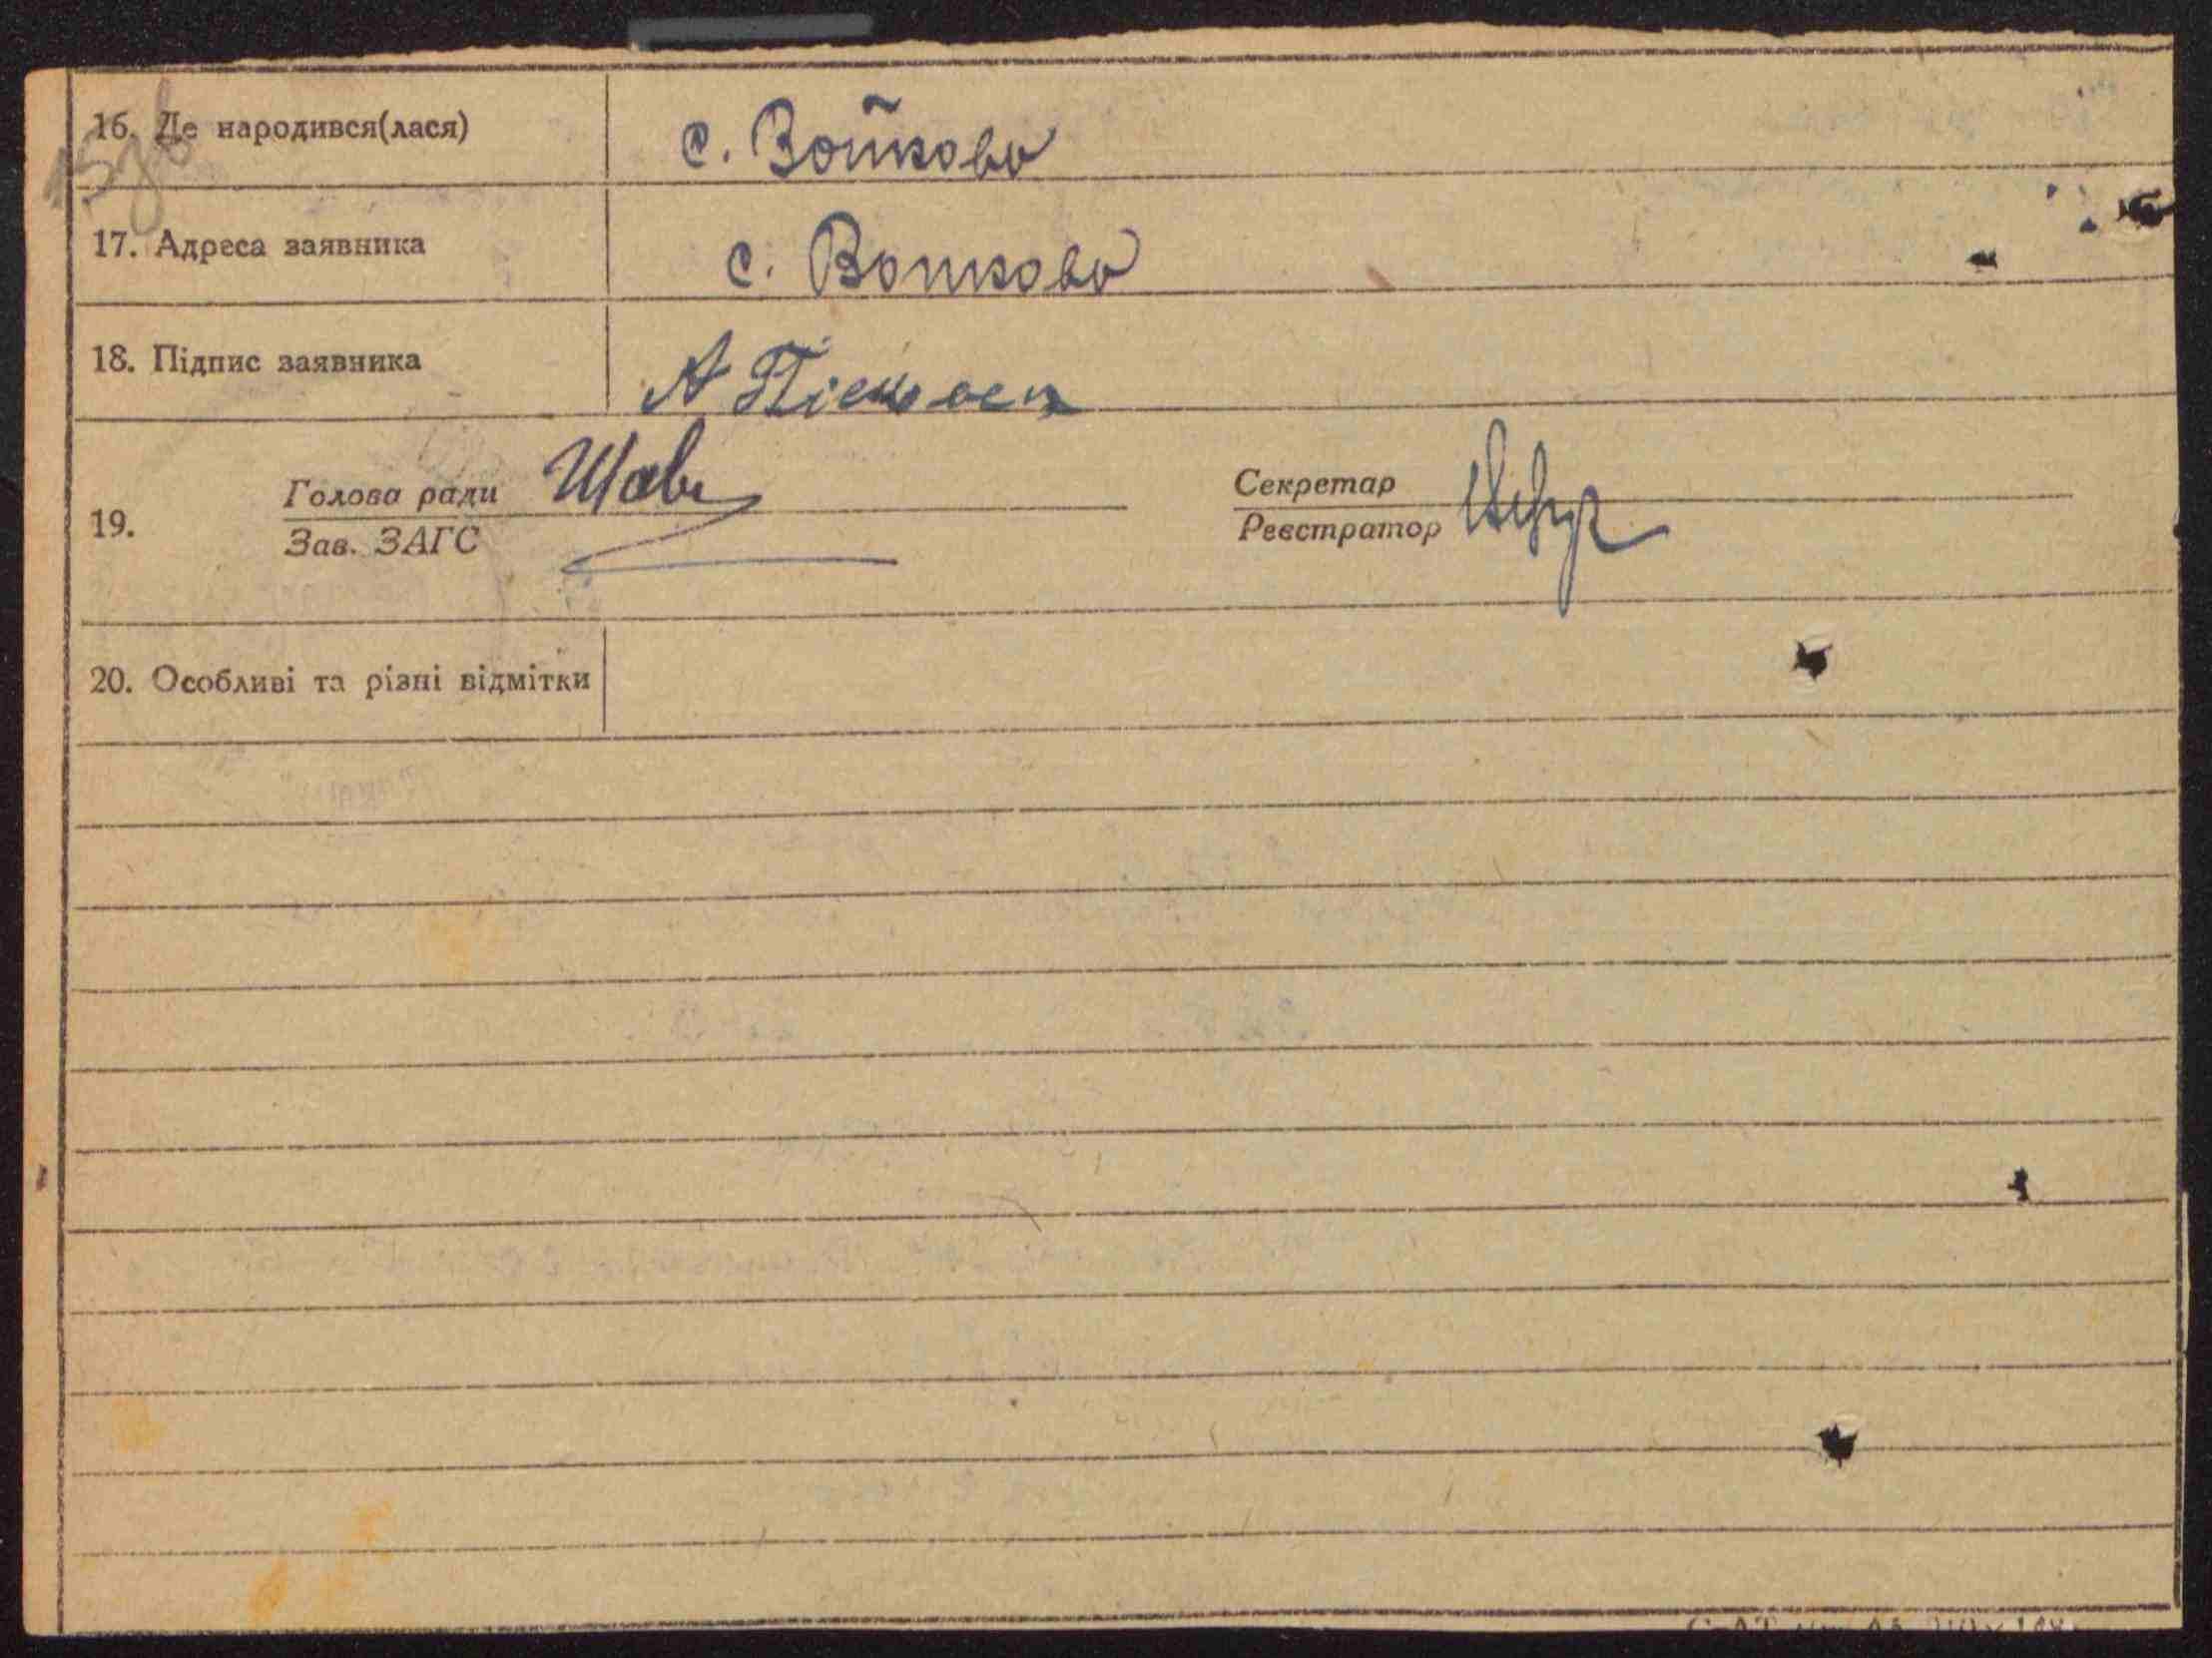 16. Де народився(лася) с. Войково
17. Адреса заявника с. Войково
18. Підпис заявника
19. Голова ради Секретар
Зав. ЗАГС Реєстратор
20. Особливі та різні відмітки